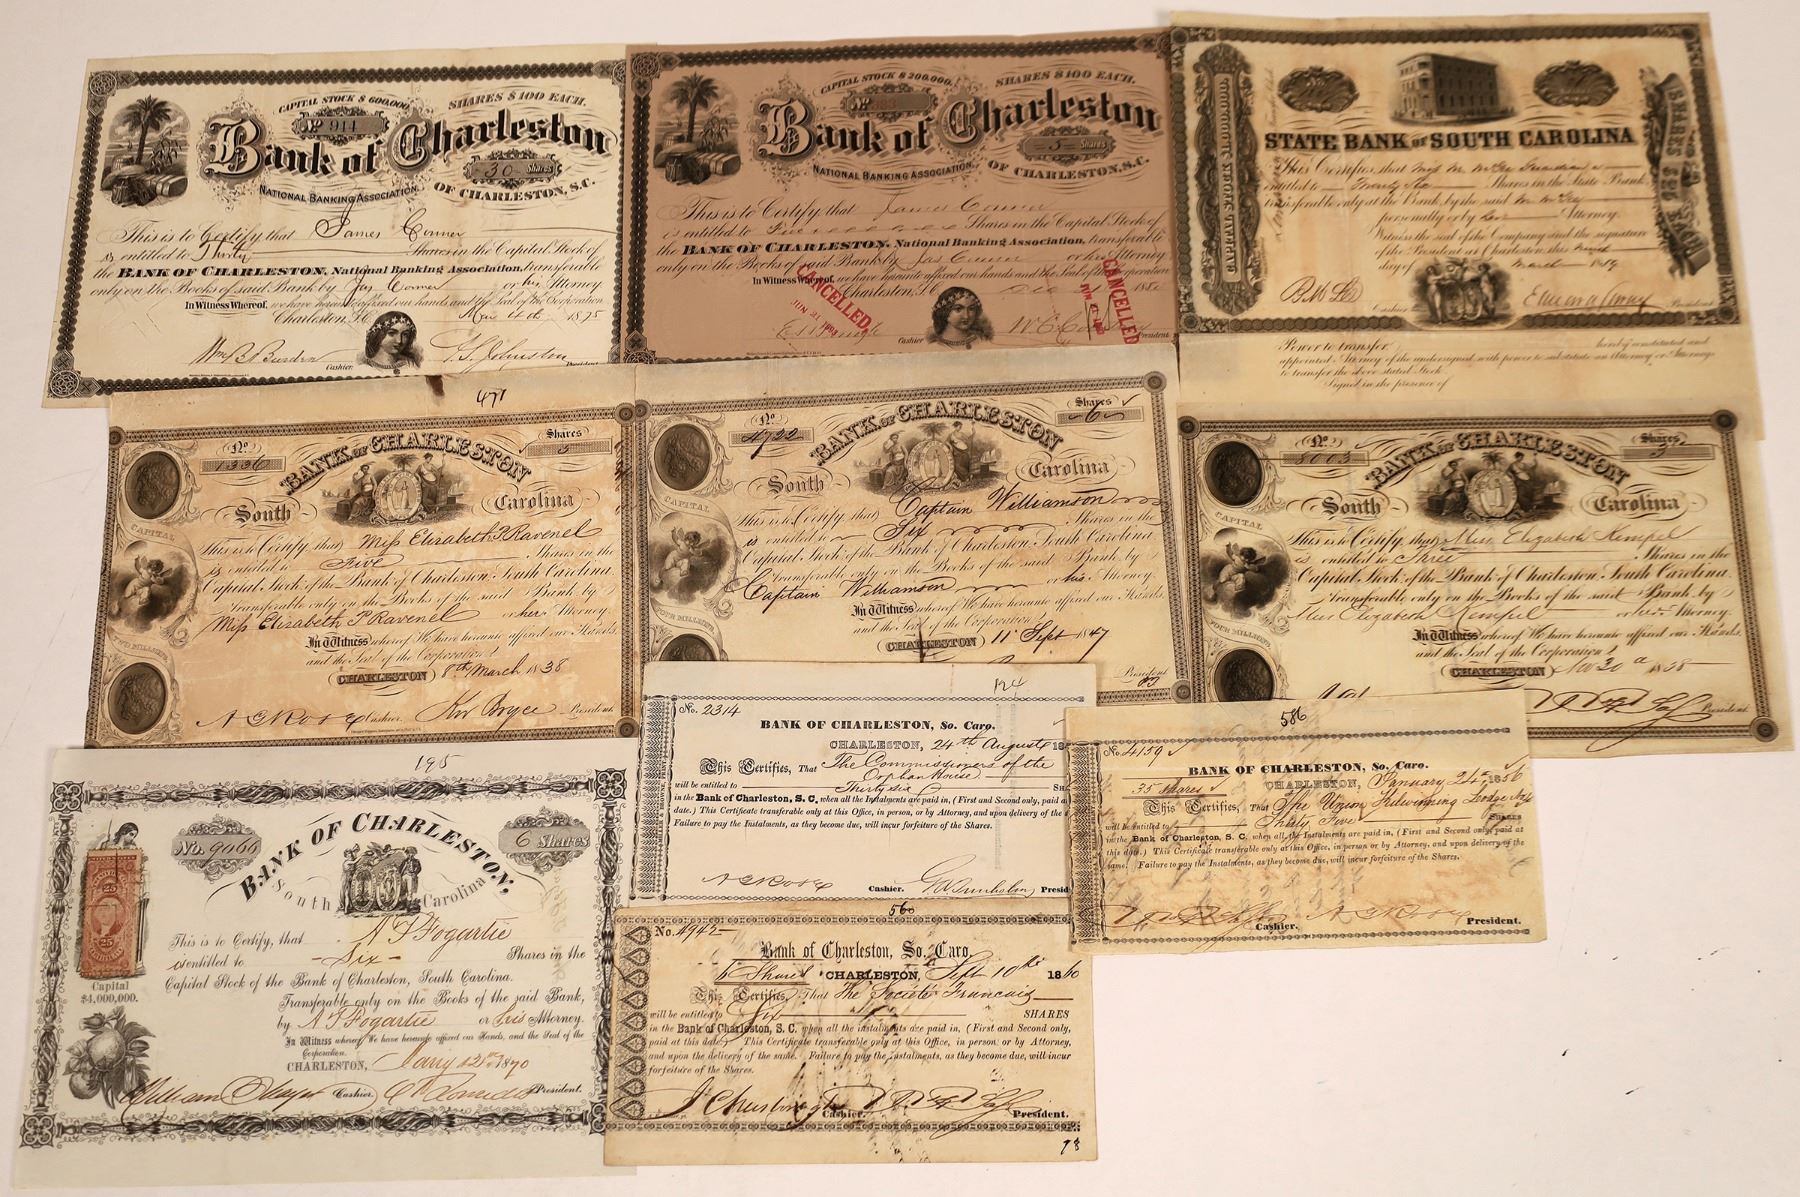 CAPITAL STOCK $ 600,000.
SHARES $ 100 EACH.
No 911
Bank of Charleston
30 Shares
NATIONAL BANKING ASSOCIATION
OF CHARLESTON, S.C.
This is to Certify that James Conner
is entitled to Thirty Shares in the Capital Stock of
the BANK OF CHARLESTON, National Banking Association, transferable
only on the Books of said Bank by Jas Conner or his Attorney
In Witness Whereof, we have hereunto affixed our hands and the Seal of the Corporation
Charleston, S.C. 1875
Cashier. President
CAPITAL STOCK $ 200,000.
SHARES $ 100 EACH.
Bank of Charleston
5 Shares
NATIONAL BANKING ASSOCIATION
OF CHARLESTON, S.C.
This is to Certify that James Conner
is entitled to Five Shares in the Capital Stock of
the BANK OF CHARLESTON, National Banking Association, transferable
only on the Books of said Bank by Jas Conner or his Attorney
In Witness Whereof, we have hereunto affixed our hands and the Seal of the Corporation
Charleston, S.C.
CANCELLED
JUN 21
CANCELLED
Cashier President
STATE BANK OF SOUTH CAROLINA
CAPITAL STOCK $1,000,000.
This Certifies that
entitled to Shares in the State Bank,
transferable only at the Bank by the said
personally or by her Attorney.
Witness the seal of the Company and the signature
of the President at Charleston this
day of March
Cashier President
Power to transfer
hereby constituted and
appointed Attorney of the undersigned, with power to substitute an Attorney or Attorneys
to transfer the above stated Stock.
Signed in the presence of
471
No. 1336
BANK OF CHARLESTON
Shares 5
South Carolina
CAPITAL
FOUR MILLIONS
This is to Certify that Miss Elizabeth P Ravenel
is entitled to Five Shares in the
Capital Stock of the Bank of Charleston, South Carolina.
Transferable only on the Books of the said Bank by
Miss Elizabeth P Ravenel or her Attorney.
In Witness whereof We have hereunto affixed our Hands
and the Seal of the Corporation.
CHARLESTON 8th March 1838
Cashier. President
No. 4722
BANK OF CHARLESTON
Shares 6
South Carolina
CAPITAL
FOUR MILLIONS
This is to Certify that Captain Williamson
is entitled to Six Shares in the
Capital Stock of the Bank of Charleston, South Carolina.
Transferable only on the Books of the said Bank by
Captain Williamson or his Attorney
In Witness whereof We have hereunto affixed our Hands
and the Seal of the Corporation
CHARLESTON 11 Sept 1847
President
No. 8003
BANK OF CHARLESTON
Shares 3
South Carolina
CAPITAL
FOUR MILLIONS
This is to Certify that Miss Elizabeth Kempel
is entitled to Three Shares in the
Capital Stock of the Bank of Charleston, South Carolina.
Transferable only on the Books of the said Bank by
Miss Elizabeth Kempel or her Attorney.
In Witness whereof We have hereunto affixed our Hands
and the Seal of the Corporation
CHARLESTON Nov 30
President
195
No. 9066
BANK OF CHARLESTON,
6 Shares
South Carolina
25
Capital
$4,000,000.
This is to Certify, that A T Fogartie
is entitled to Six Shares in the
Capital Stock of the Bank of Charleston, South Carolina.
Transferable only on the Books of the said Bank,
by A T Fogartie or his Attorney.
In Witness whereof, We have hereunto affixed our Hands, and the Seal of the
Corporation.
CHARLESTON, 1870
Cashier. President.
124
No. 2314
BANK OF CHARLESTON, So. Caro.
CHARLESTON, 24th August 18
This Certifies, That The Commissioners of the
Orphan House
will be entitled to Thirty six
in the Bank of Charleston, S. C. when all the Instalments are paid in, (First and Second only, paid a
date.) This Certificate transferable only at this Office, in person, or by Attorney, and upon delivery of the
Failure to pay the Instalments, as they become due, will incur forfeiture of the Shares.
Cashier. Presid
586
No. 4159
BANK OF CHARLESTON, So. Caro.
35 shares
CHARLESTON, January 24 1856
This Certifies, That The Union Kilwinning Lodge
will be entitled to Thirty Five Shares
in the Bank of Charleston, S. C. when all the Instalments are paid in, (First and Second only, paid at
this date.) This Certificate transferable only at this Office, in person or by Attorney, and upon delivery of the
same. Failure to pay the Instalments, as they become due, will incur forfeiture of the Shares.
Cashier. President.
560
No. 4942
Bank of Charleston, So. Caro.
6 Shares
CHARLESTON, Sept 10th 1860
This Certifies, That The Société Francais
will be entitled to Six SHARES
in the Bank of Charleston, S. C. when all the instalments are paid in, (First and Second only,
paid at this date.) This Certificate transferable only at this Office, in person or by Attorney,
and upon the delivery of the same. Failure to pay the Instalments, as they become due, will incur
forfeiture of the Shares.
Cashier. President.
78